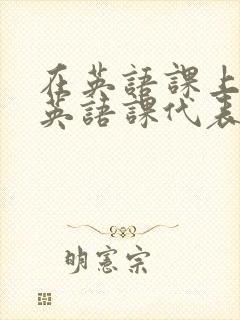 在英語課上
英語課代表
明憲宗